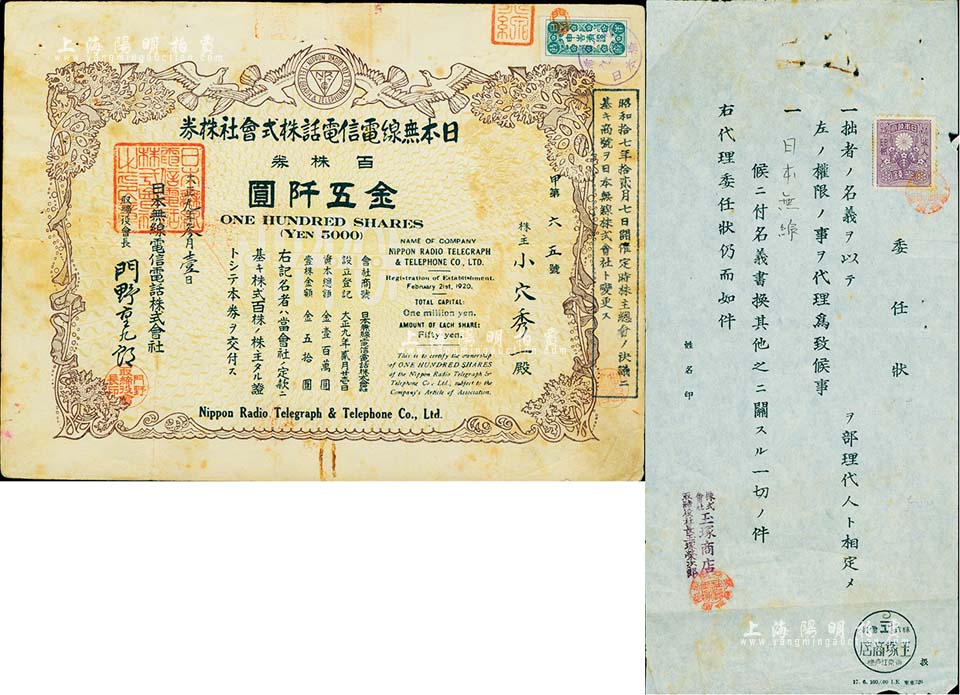 上海陽明拍賣
www.yangmingauction.com
NIPPON RADIO TELEGRAPH & TELEPHONE
日本無線電信電話株式會社株券
百株券
金五阡圓
ONE HUNDRED SHARES
(YEN 5000)
甲第六五號
株主 小穴秀一殿
NAME OF COMPANY
NIPPON RADIO TELEGRAPH
& TELEPHONE CO., LTD.
Registration of Establishment.
February 21st, 1920.
TOTAL CAPITAL:
One million yen.
AMOUNT OF EACH SHARE:
Fifty yen.
This is to certify the ownership
of ONE HUNDRED SHARES
of the Nippon Radio Telegraph &
Telephone Co., Ltd., subject to the
Company's Article of Association.
會社商號 日本無線電信電話株式會社
設立登記 大正九年貳月廿壹日
資本總額 金壹百萬圓
壹株金額 金五拾圓
右記名者ハ當會社ノ定款ニ
基キ株式百株ノ株主タル證
トシテ本券ヲ交付ス
日本無線電信電話株式會社
取締役會長 門野重九郎
Nippon Radio Telegraph & Telephone Co., Ltd.
昭和拾七年拾貳月七日開催定時株主總會ノ決議ニ
基キ商號ヲ日本無線株式會社ト變更ス
委任状
一拙者ノ名義ヲ以テ
ヲ部理代人ト相定メ
左ノ權限ノ事ヲ代理爲致候事
一 日本無線
候ニ付名義書換其他之ニ關スル一切ノ件
右代理委任狀仍而如件
姓名印
株式會社 玉塚商店
玉塚商店
扱
上海陽明拍賣
www.yangmingauction.com